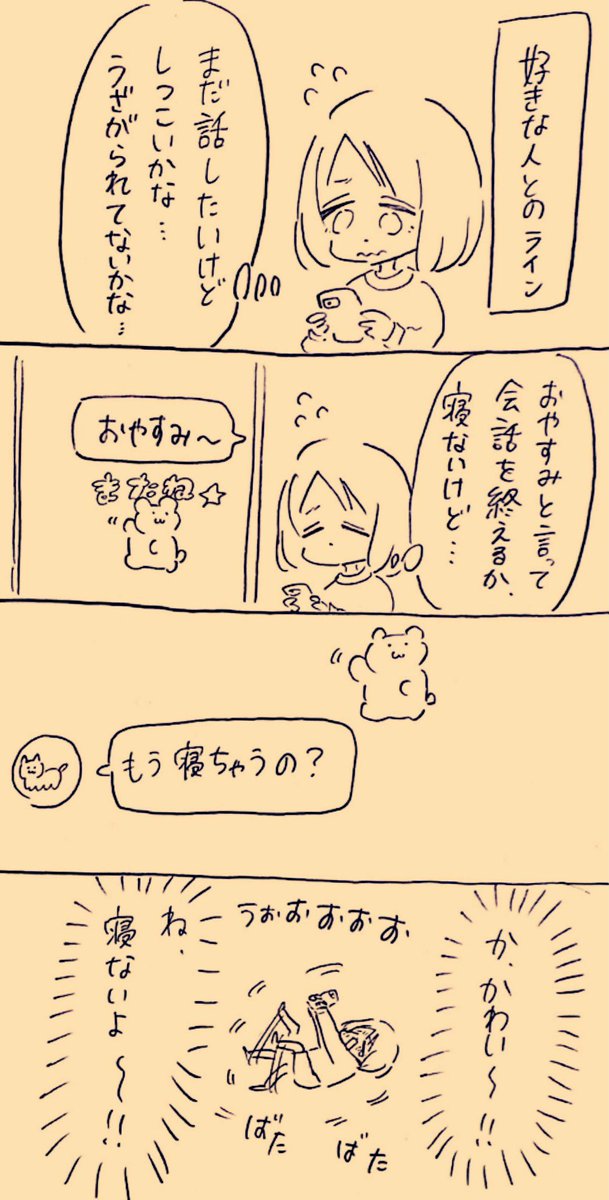 好きな人とのライン
まだ話したいけど
しつこいかな…
うざがられてないかな…
おやすみと言って
会話を終えるか、
寝ないけど…
おやすみ〜
またね☆
もう寝ちゃうの？
か、かわい〜!!
うおおおおお
ばた
ばた
ね、
寝ないよ〜!!